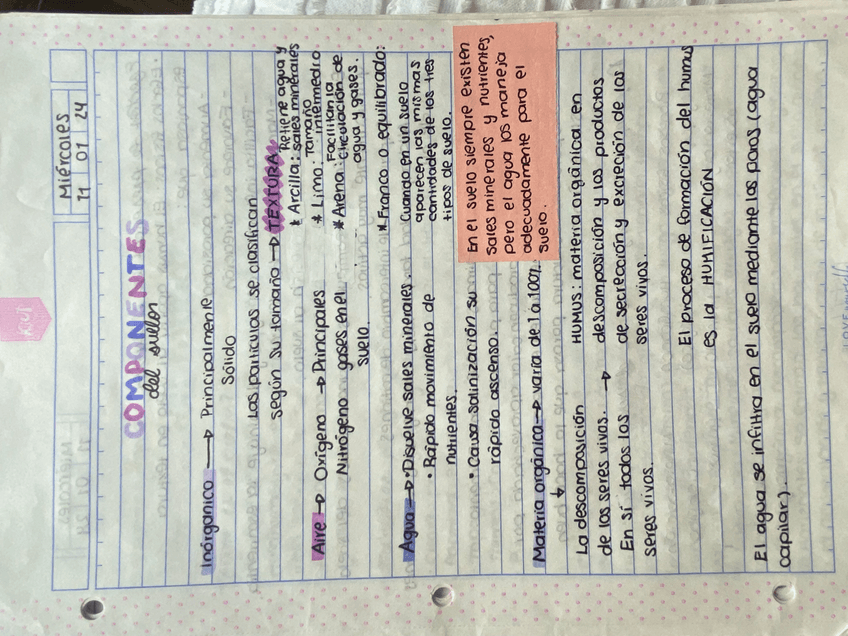 Miércoles
11 01 24
COMPONENTES
del suelos
Inórganico → Principalmente
sólido
Las partículas se clasifican
según su tamaño → TEXTURA
Retiene agua y
* Arcilla: sales minerales
* Limo: Tamaño
intermedio
* Arena: Facilitan la
circulación de
agua y gases.
Aire → Oxígeno → Principales
Nitrógeno gases en el
suelo.
* Franco o equilibrado:
Cuando en un suelo
aparecen las mismas
cantidades de los tres
tipos de suelo.
Agua → • Disuelve sales minerales.
• Rápido movimiento de
nutrientes.
• Causa salinización su
rápido ascenso.
En el suelo siempre existen
sales minerales y nutrientes,
pero el agua los maneja
adecuadamente para el
suelo.
Materia orgánica → varía de 1 a 100%.
↓
La descomposición
de los seres vivos. →
En sí todos los
seres vivos.
HUMUS: materia orgánica en
descomposición y los productos
de secrección y excreción de los
seres vivos.
El proceso de formación del humus
es la HUMIFICACIÓN
El agua se infiltra en el suelo mediante los poros (agua
capilar).